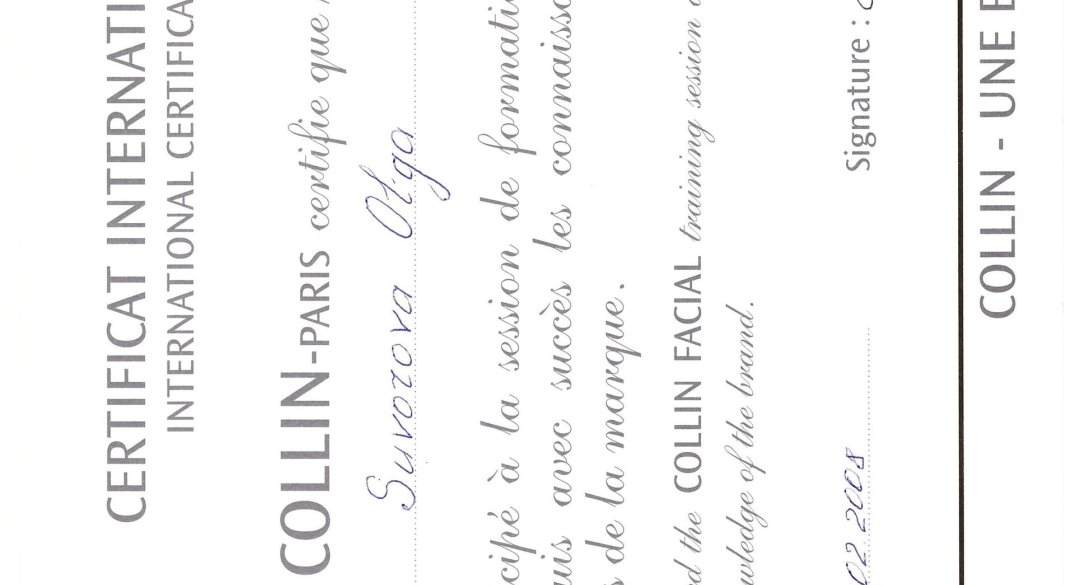 CERTIFICAT INTERNATI
INTERNATIONAL CERTIFICA
COLLIN-PARIS certifie que
Suvorova Olga
cipé à la session de formati
uis avec succès les connaiss
s de la marque.
d the COLLIN FACIAL training session
wledge of the brand.
02 2008 Signature :
COLLIN - UNE